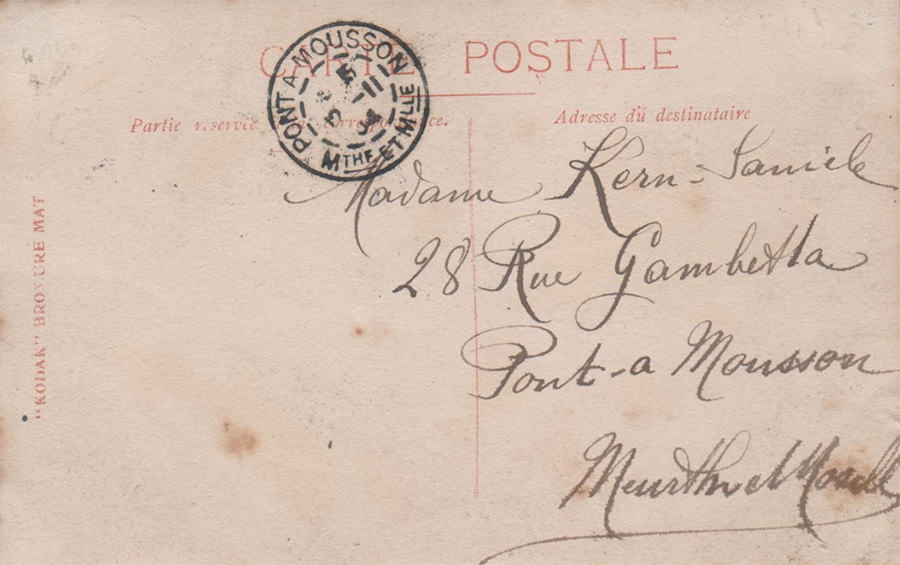 CARTE POSTALE
PONT A MOUSSON
MTHE ET MLLE
Partie réservée correspondance.
Adresse du destinataire
"KODAK" BROMURE MAT
Madame Kern-Daniele
28 Rue Gambetta
Pont-a Mousson
Meurthe et Moselle